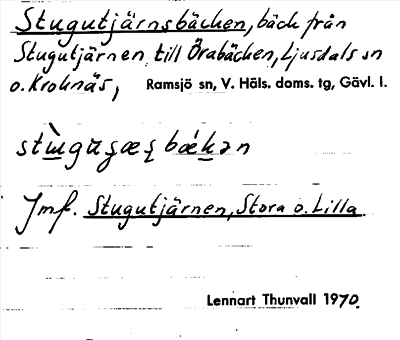 Stugutjärnsbäcken, bäck från
Stugutjärnen till Örabäcken, Ljusdals sn
o. Kroknäs, Ramsjö sn, V. Häls. doms. tg, Gävl. l.
Jmf. Stugutjärnen, Stora o. Lilla
Lennart Thunvall 1970.